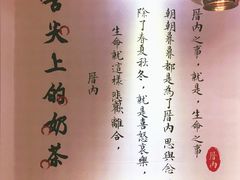 厝內之事，就是，生命之事
朝朝暮暮都是為了厝內思與念
除了春夏秋冬，就是喜怒哀樂，
生命就這樣悲歡離合，
厝內
舌尖上的奶茶
厝內